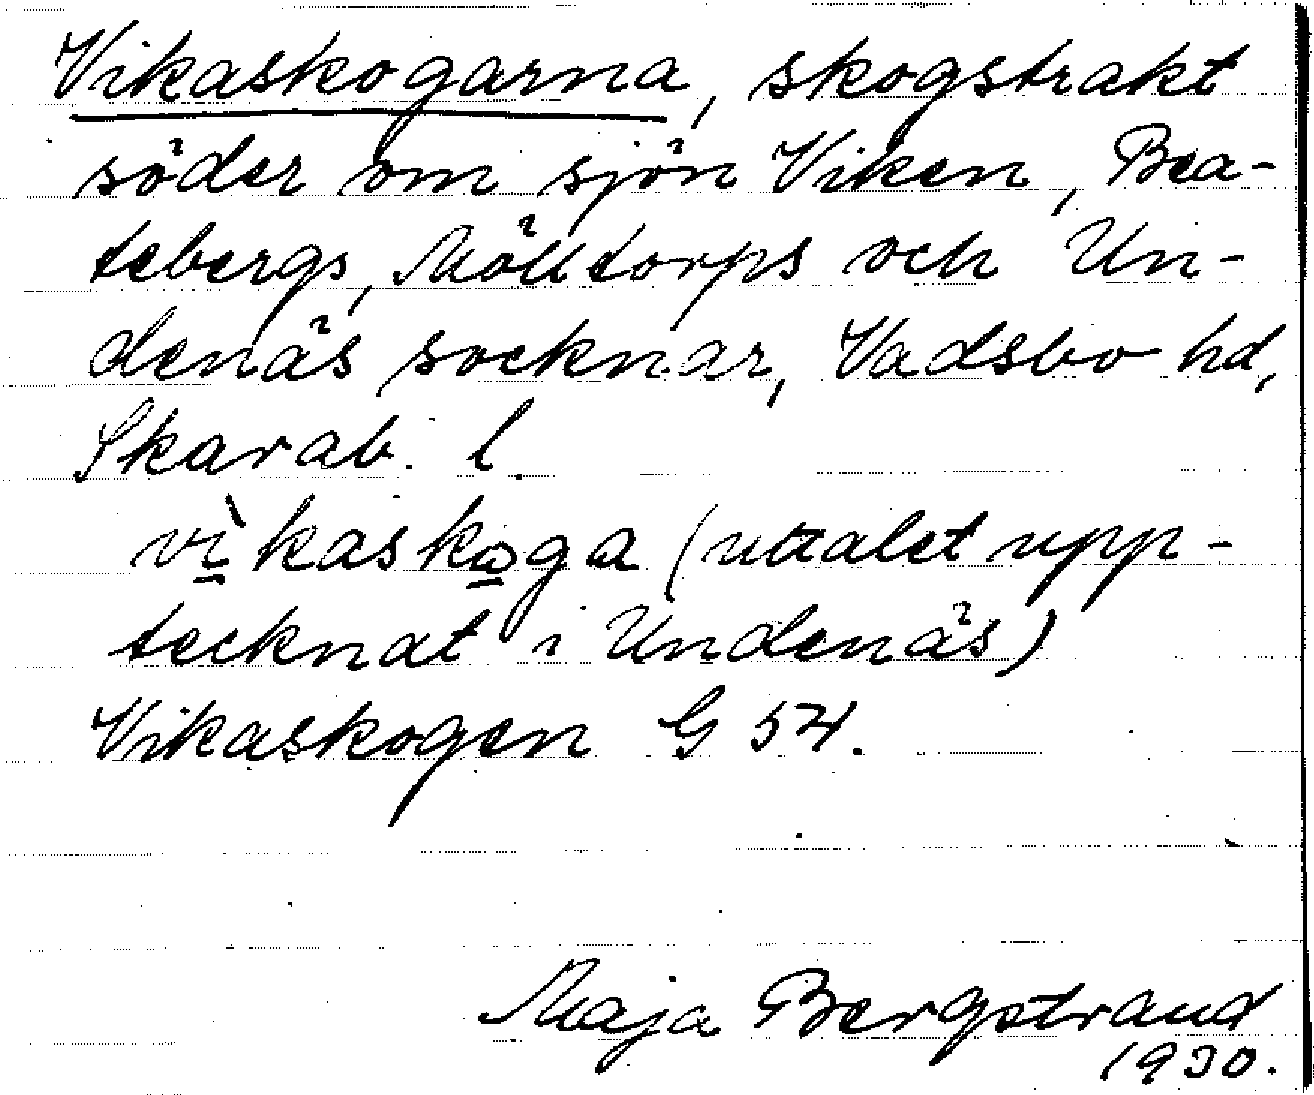 Vikaskogarna, skogstrakt
söder om sjön Viken, Bea-
tebergs, Mölltorps och Un-
denäs socknar, Vadsbo hd,
Skarab. l.
vìkaskoga (uttalet upp-
tecknat i Undenäs)
Vikaskogen G 54.
Maja Bergstrand
1930.